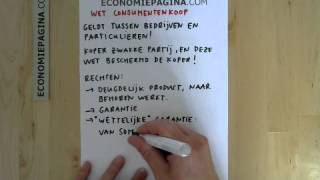 ECONOMIEPAGINA.COM
ECONOMIEPAGINA.COM
WET CONSUMENTENKOOP
GELDT TUSSEN BEDRIJVEN EN
PARTICULIEREN!
KOPER ZWAKKE PARTIJ, EN DEZE
WET BESCHERMD DE KOPER!
RECHTEN:
→ DEUGDELIJK PRODUCT, NAAR
BEHOREN WERKT.
→ GARANTIE
→ "WETTELIJKE" GARANTIE:
VAN SOM